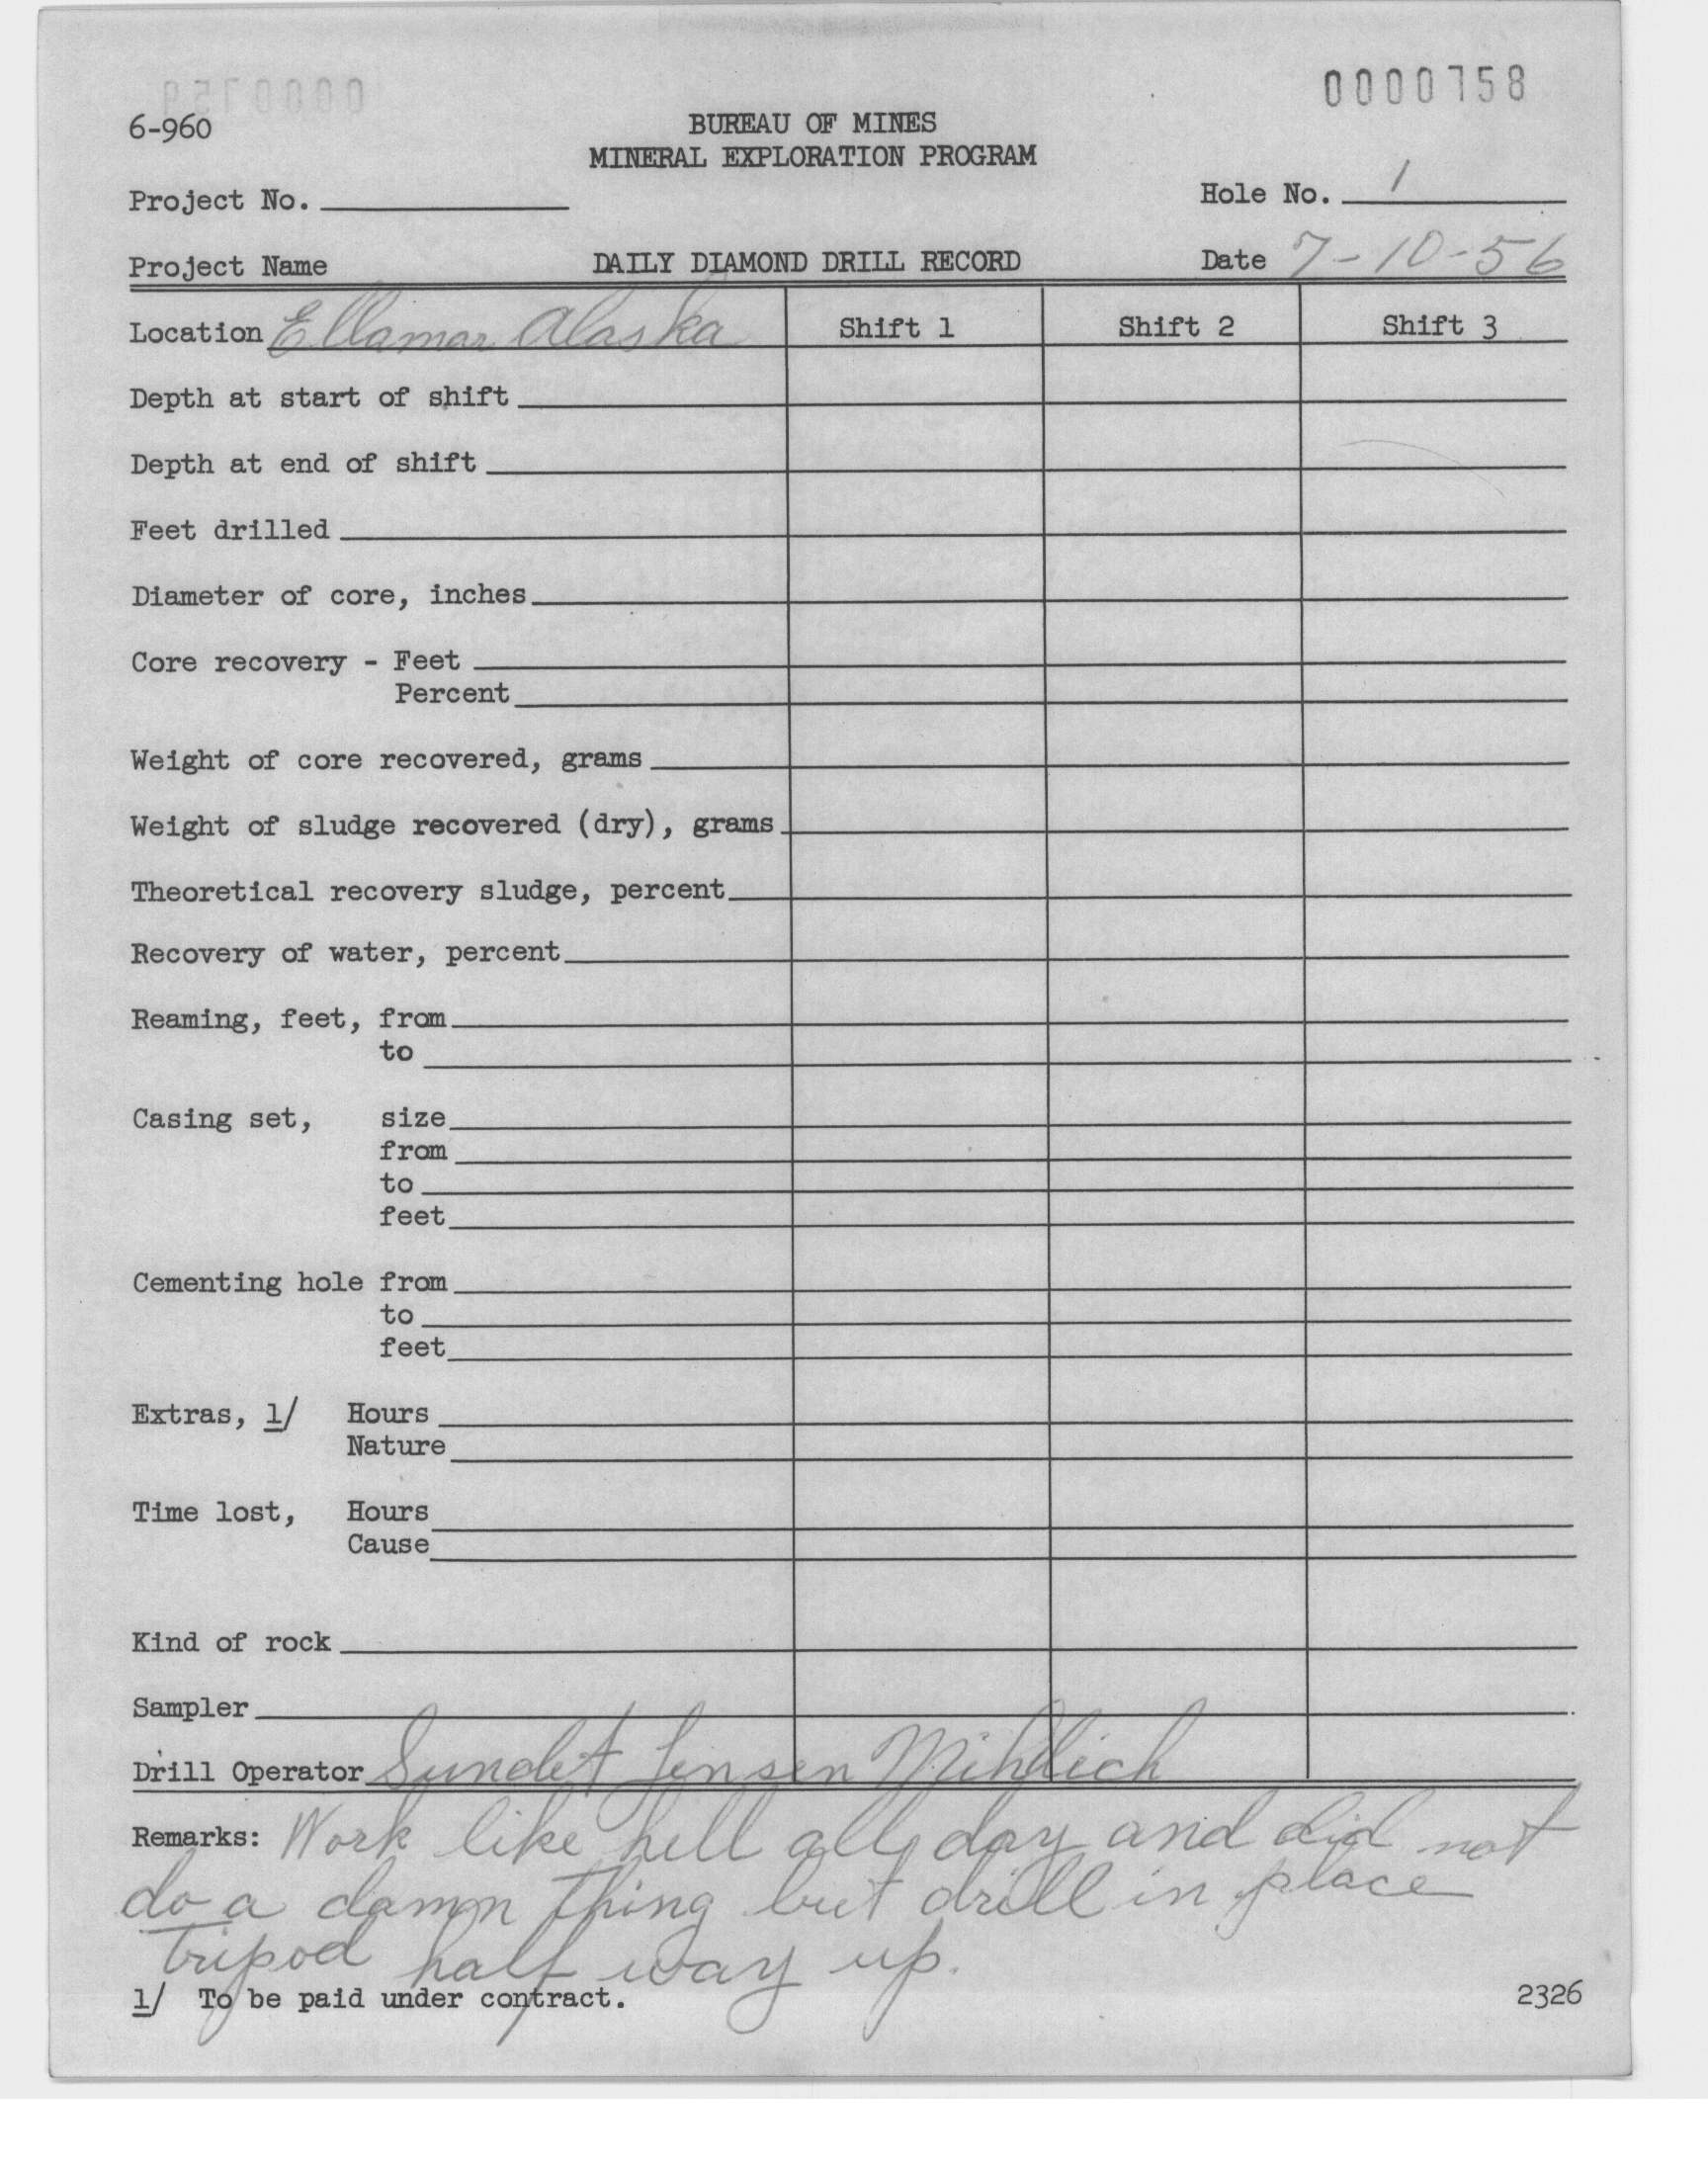 0000758
6-960
BUREAU OF MINES
MINERAL EXPLORATION PROGRAM
Project No.
Hole No. 1
Project Name DAILY DIAMOND DRILL RECORD Date 7-10-56
Location Ellamar Alaska Shift 1 Shift 2 Shift 3
Depth at start of shift
Depth at end of shift
Feet drilled
Diameter of core, inches
Core recovery - Feet
Percent
Weight of core recovered, grams
Weight of sludge recovered (dry), grams
Theoretical recovery sludge, percent
Recovery of water, percent
Reaming, feet, from
to
Casing set, size
from
to
feet
Cementing hole from
to
feet
Extras, 1/ Hours
Nature
Time lost, Hours
Cause
Kind of rock
Sampler
Drill Operator Sundet Jensen Mihelich
Remarks: Work like hell all day and did not
do a damn thing but drill in place
tripod half way up.
1/ To be paid under contract.
2326